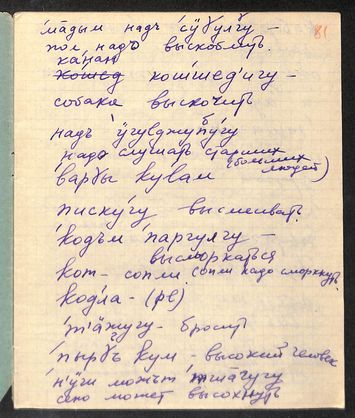 81
ма̄дым надъ сӱбулгу –
пол надъ выскоблить.
ка́нан
ко́шед кошшед'игу –
собака выскочить
надъ ӱгулджубу́гу
надо слушать старших
(больших людей)
варбы кула́м
писку́гу высмеивать
ко́дъм паргулгу –
высморкаться
кот – сопли сопли надо сморкнуть
ко́дла – (рв)
т'ӓжугу – бросить
пырбъ кум – высокий человек
н'ӱҗи можът тша́чугу
сено может высохнуть